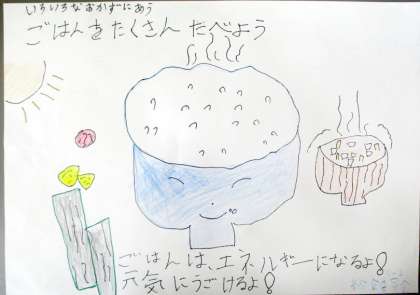 いろいろなおかずにあう
ごはんをたくさん たべよう
ごはんは、エネルギーになるよ!
元気にうごけるよ!